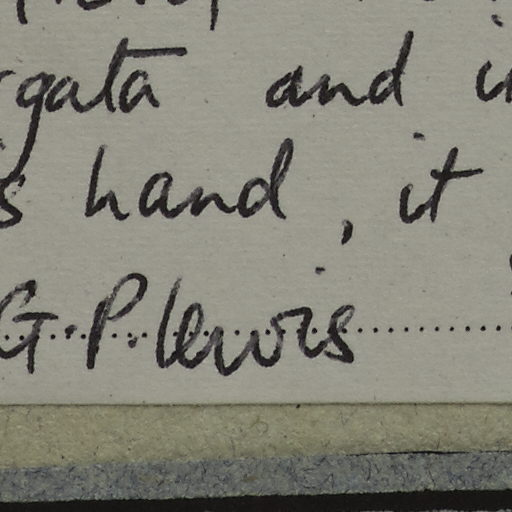 rgata and
s hand, it
G.P. Lewis